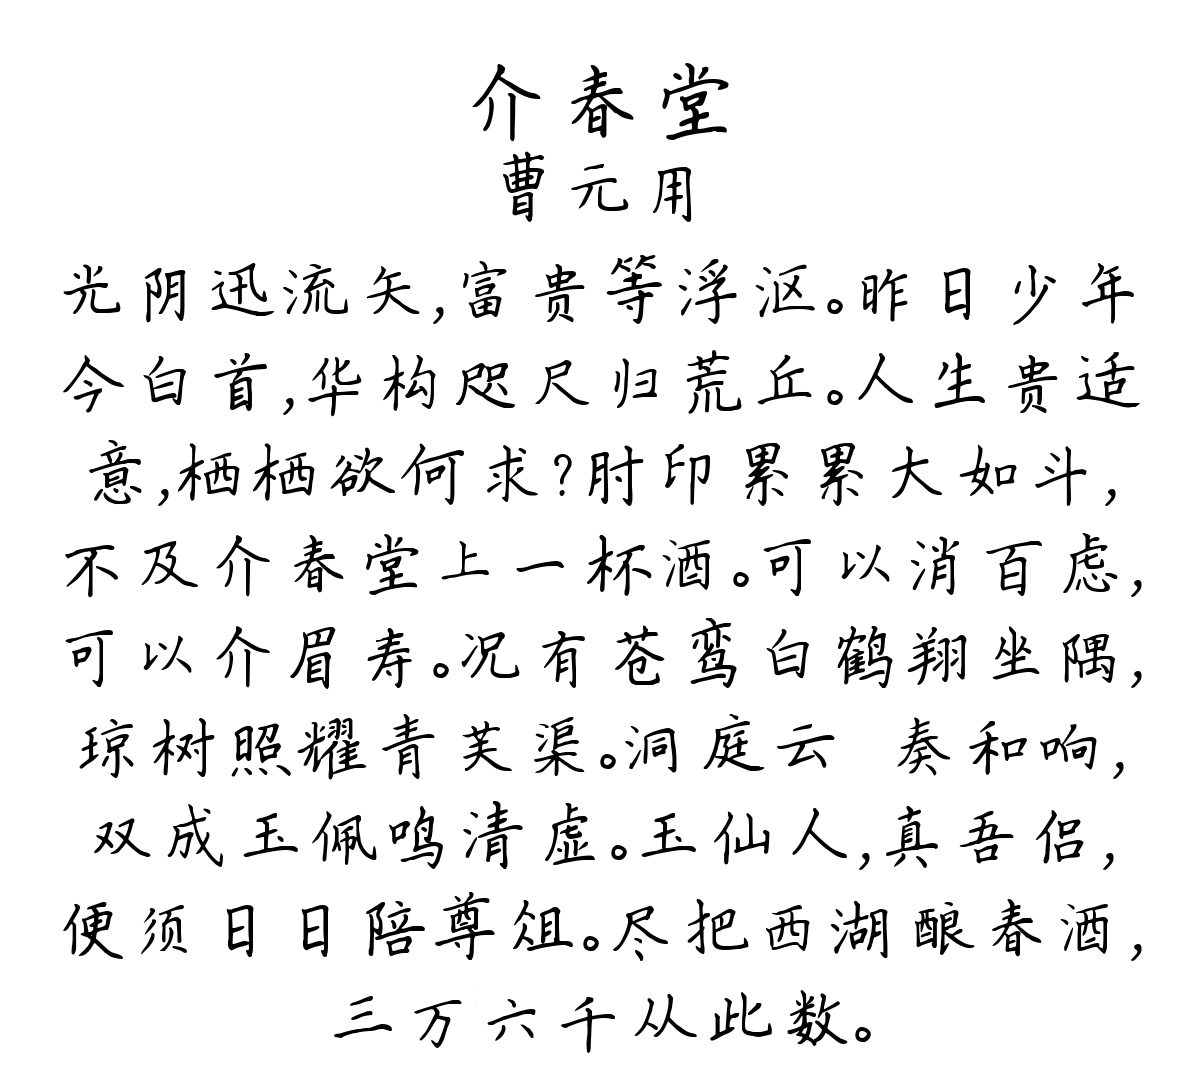 介春堂
曹元用
光阴迅流矢,富贵等浮沤。昨日少年
今白首,华构咫尺归荒丘。人生贵适
意,栖栖欲何求?肘印累累大如斗,
不及介春堂上一杯酒。可以消百虑,
可以介眉寿。况有苍鸾白鹤翔坐隅,
琼树照耀青芙渠。洞庭云 奏和响,
双成玉佩鸣清虚。玉仙人,真吾侣,
便须日日陪尊俎。尽把西湖酿春酒,
三万六千从此数。